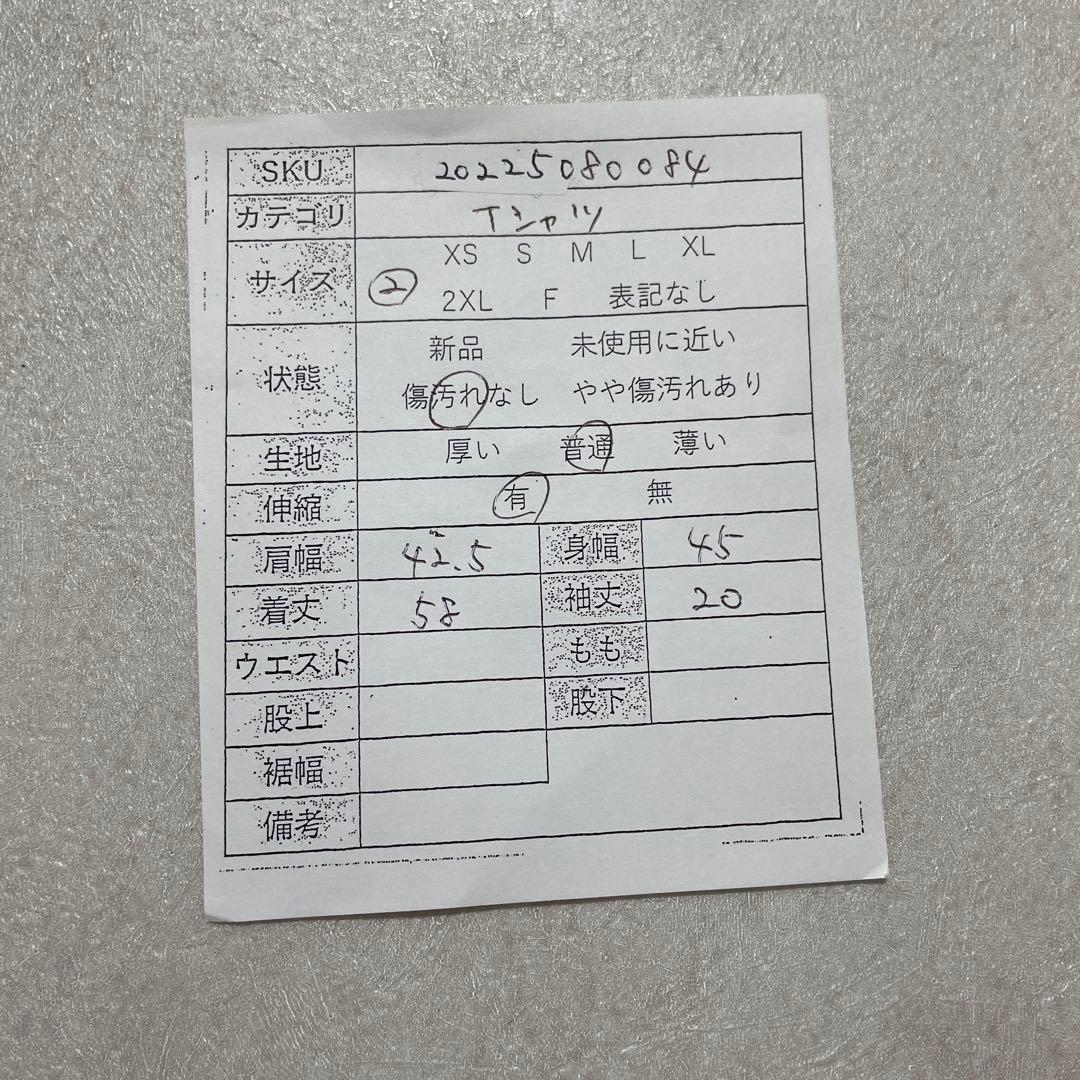 SKU 20225080084
カテゴリ Tシャツ
XS S M L XL
サイズ ②
2XL F 表記なし
新品 未使用に近い
状態
傷汚れなし やや傷汚れあり
生地 厚い 普通 薄い
伸縮 有 無
肩幅 42.5 身幅 45
着丈 58 袖丈 20
ウエスト もも
股上 股下
裾幅
備考